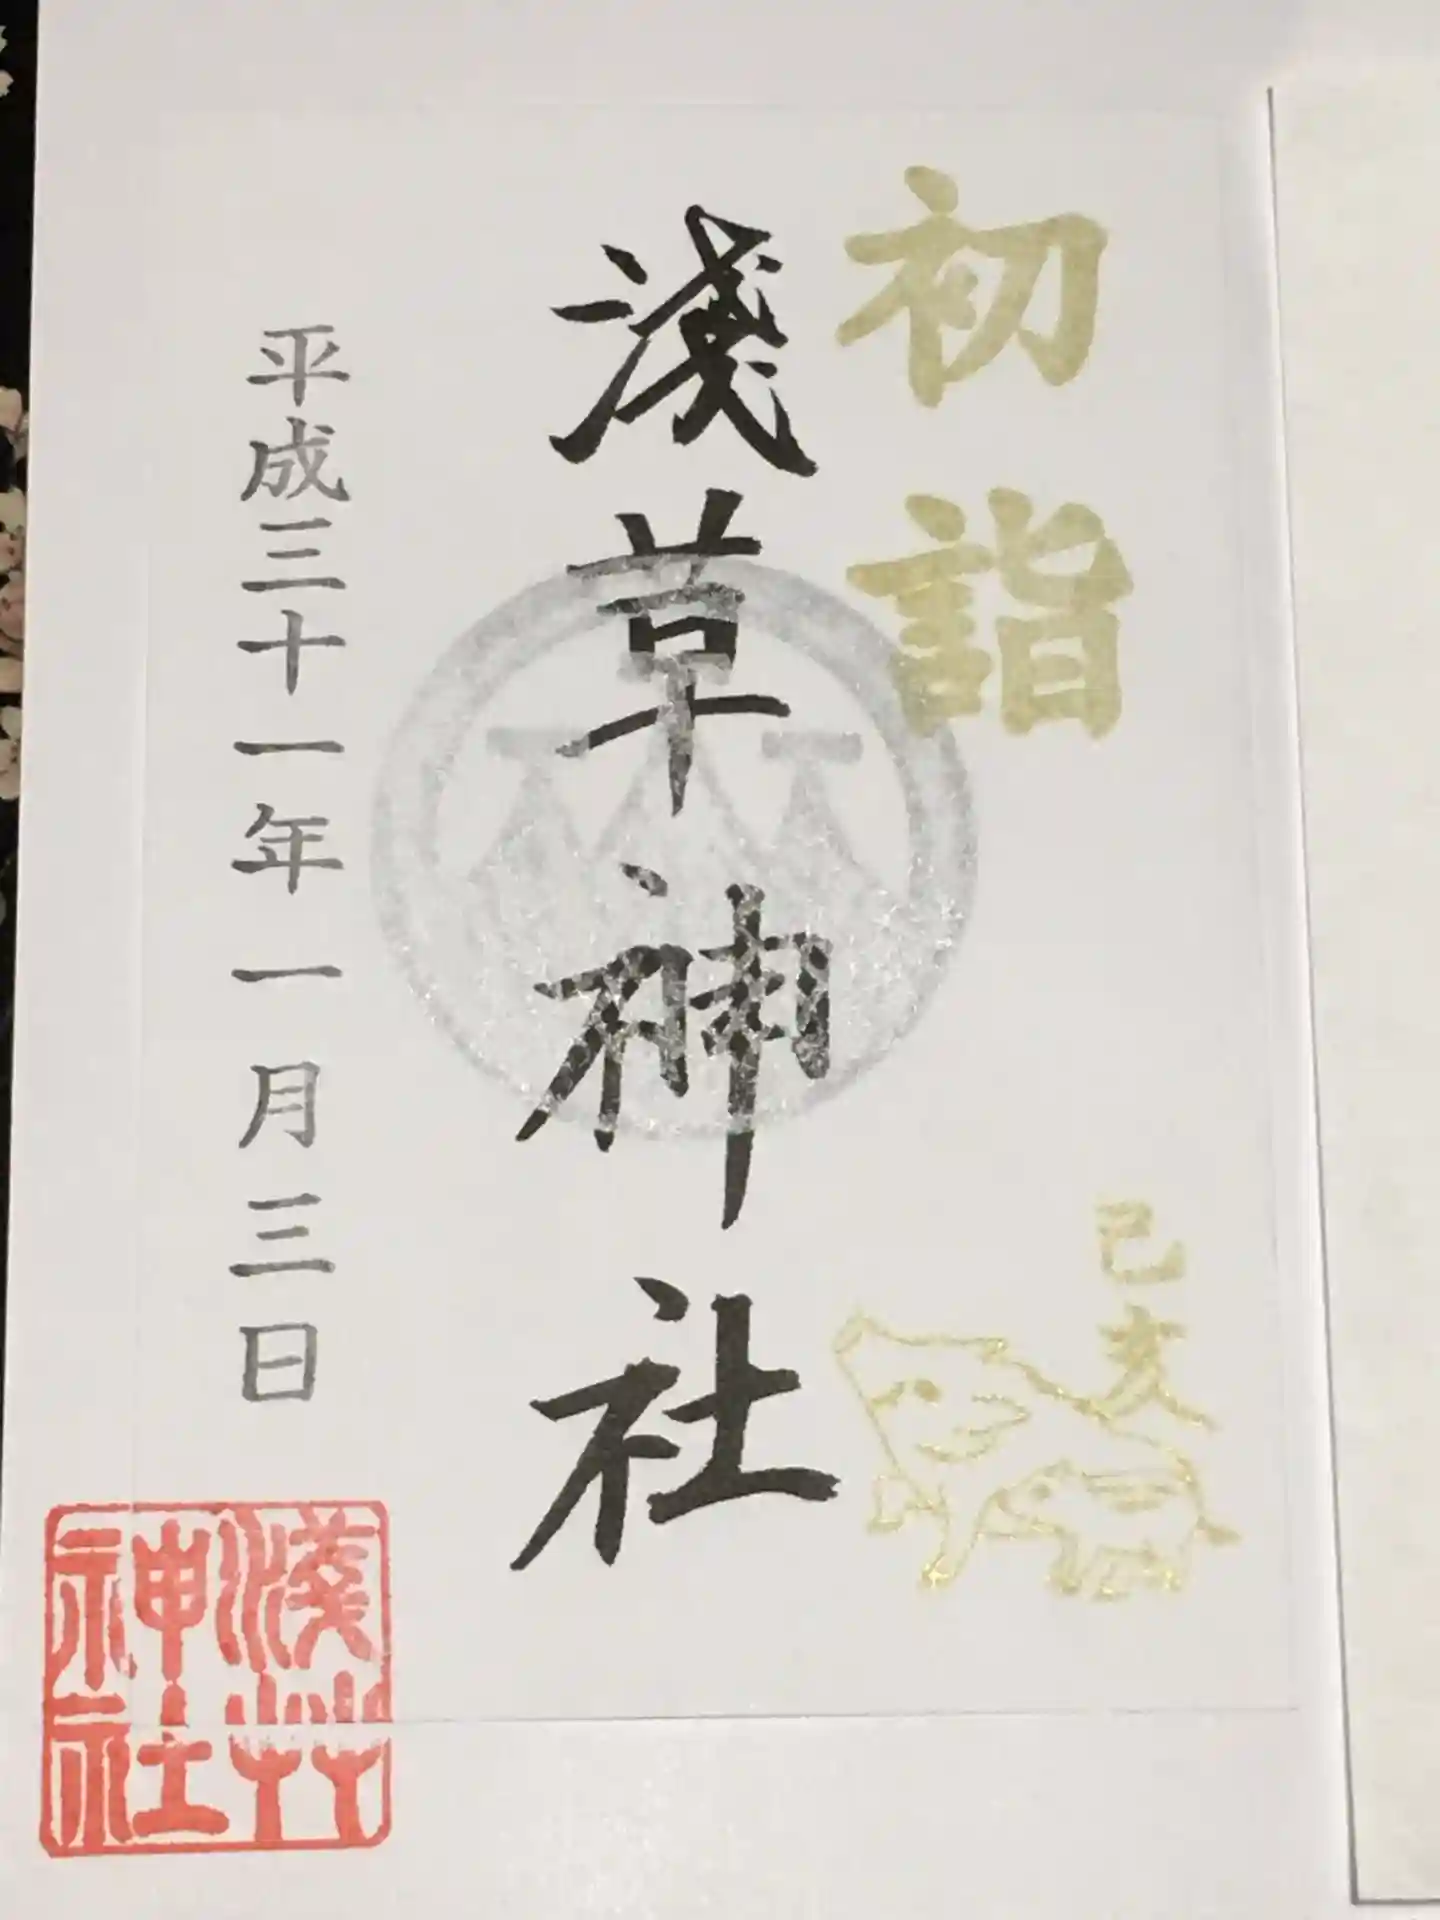 初詣
己亥
淺草神社
平成三十一年一月三日
淺艸
神社